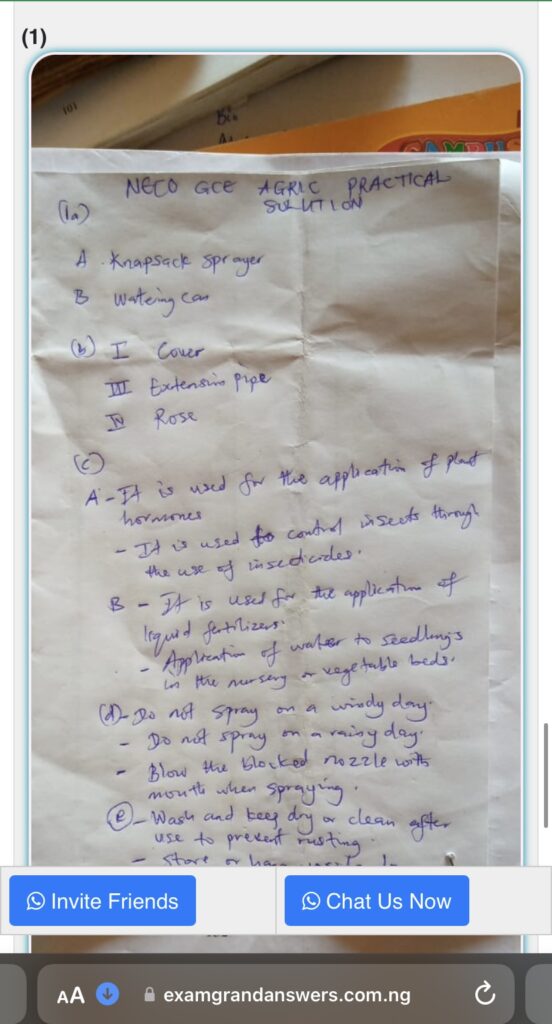 (1)
101
Bio
NECO GCE AGRIC PRACTICAL
SOLUTION
(1a)
A . Knapsack sprayer
B Watering can
(b) I Cover
III Extension pipe
IV Rose
(c)
A - It is used for the application of plant
hormones
- It is used to control insects through
the use of insecticides.
B - It is used for the application of
liquid fertilizers.
- Application of water to seedlings
in the nursery or vegetable beds.
(d) - Do not spray on a windy day.
- Do not spray on a rainy day.
- Blow the blocked nozzle with
mouth when spraying.
(e) - Wash and keep dry or clean after
use to prevent rusting.
- Store or
Invite Friends
Chat Us Now
AA
examgrandanswers.com.ng